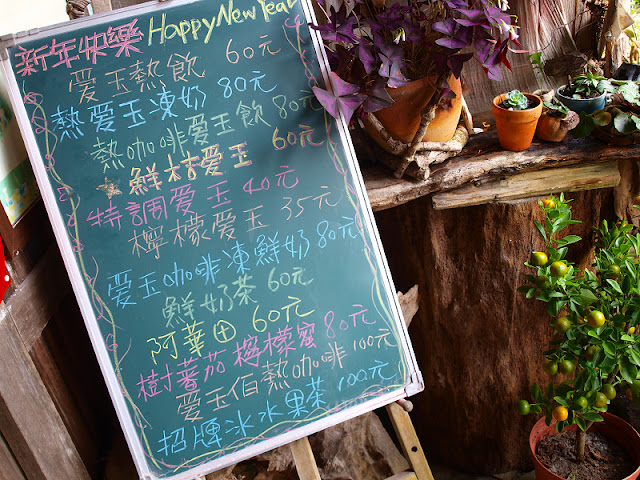 新年快樂 Happy New Year
愛玉熱飲 60元
熱愛玉凍奶 80元
熱咖啡愛玉飲 80元
★鮮桔愛玉 60元
特調愛玉 40元
檸檬愛玉 35元
愛玉咖啡凍鮮奶 80元
鮮奶茶 60元
阿華田 60元
樹蕃茄檸檬蜜 80元
愛玉佰熱咖啡 100元
招牌冰水果茶 100元